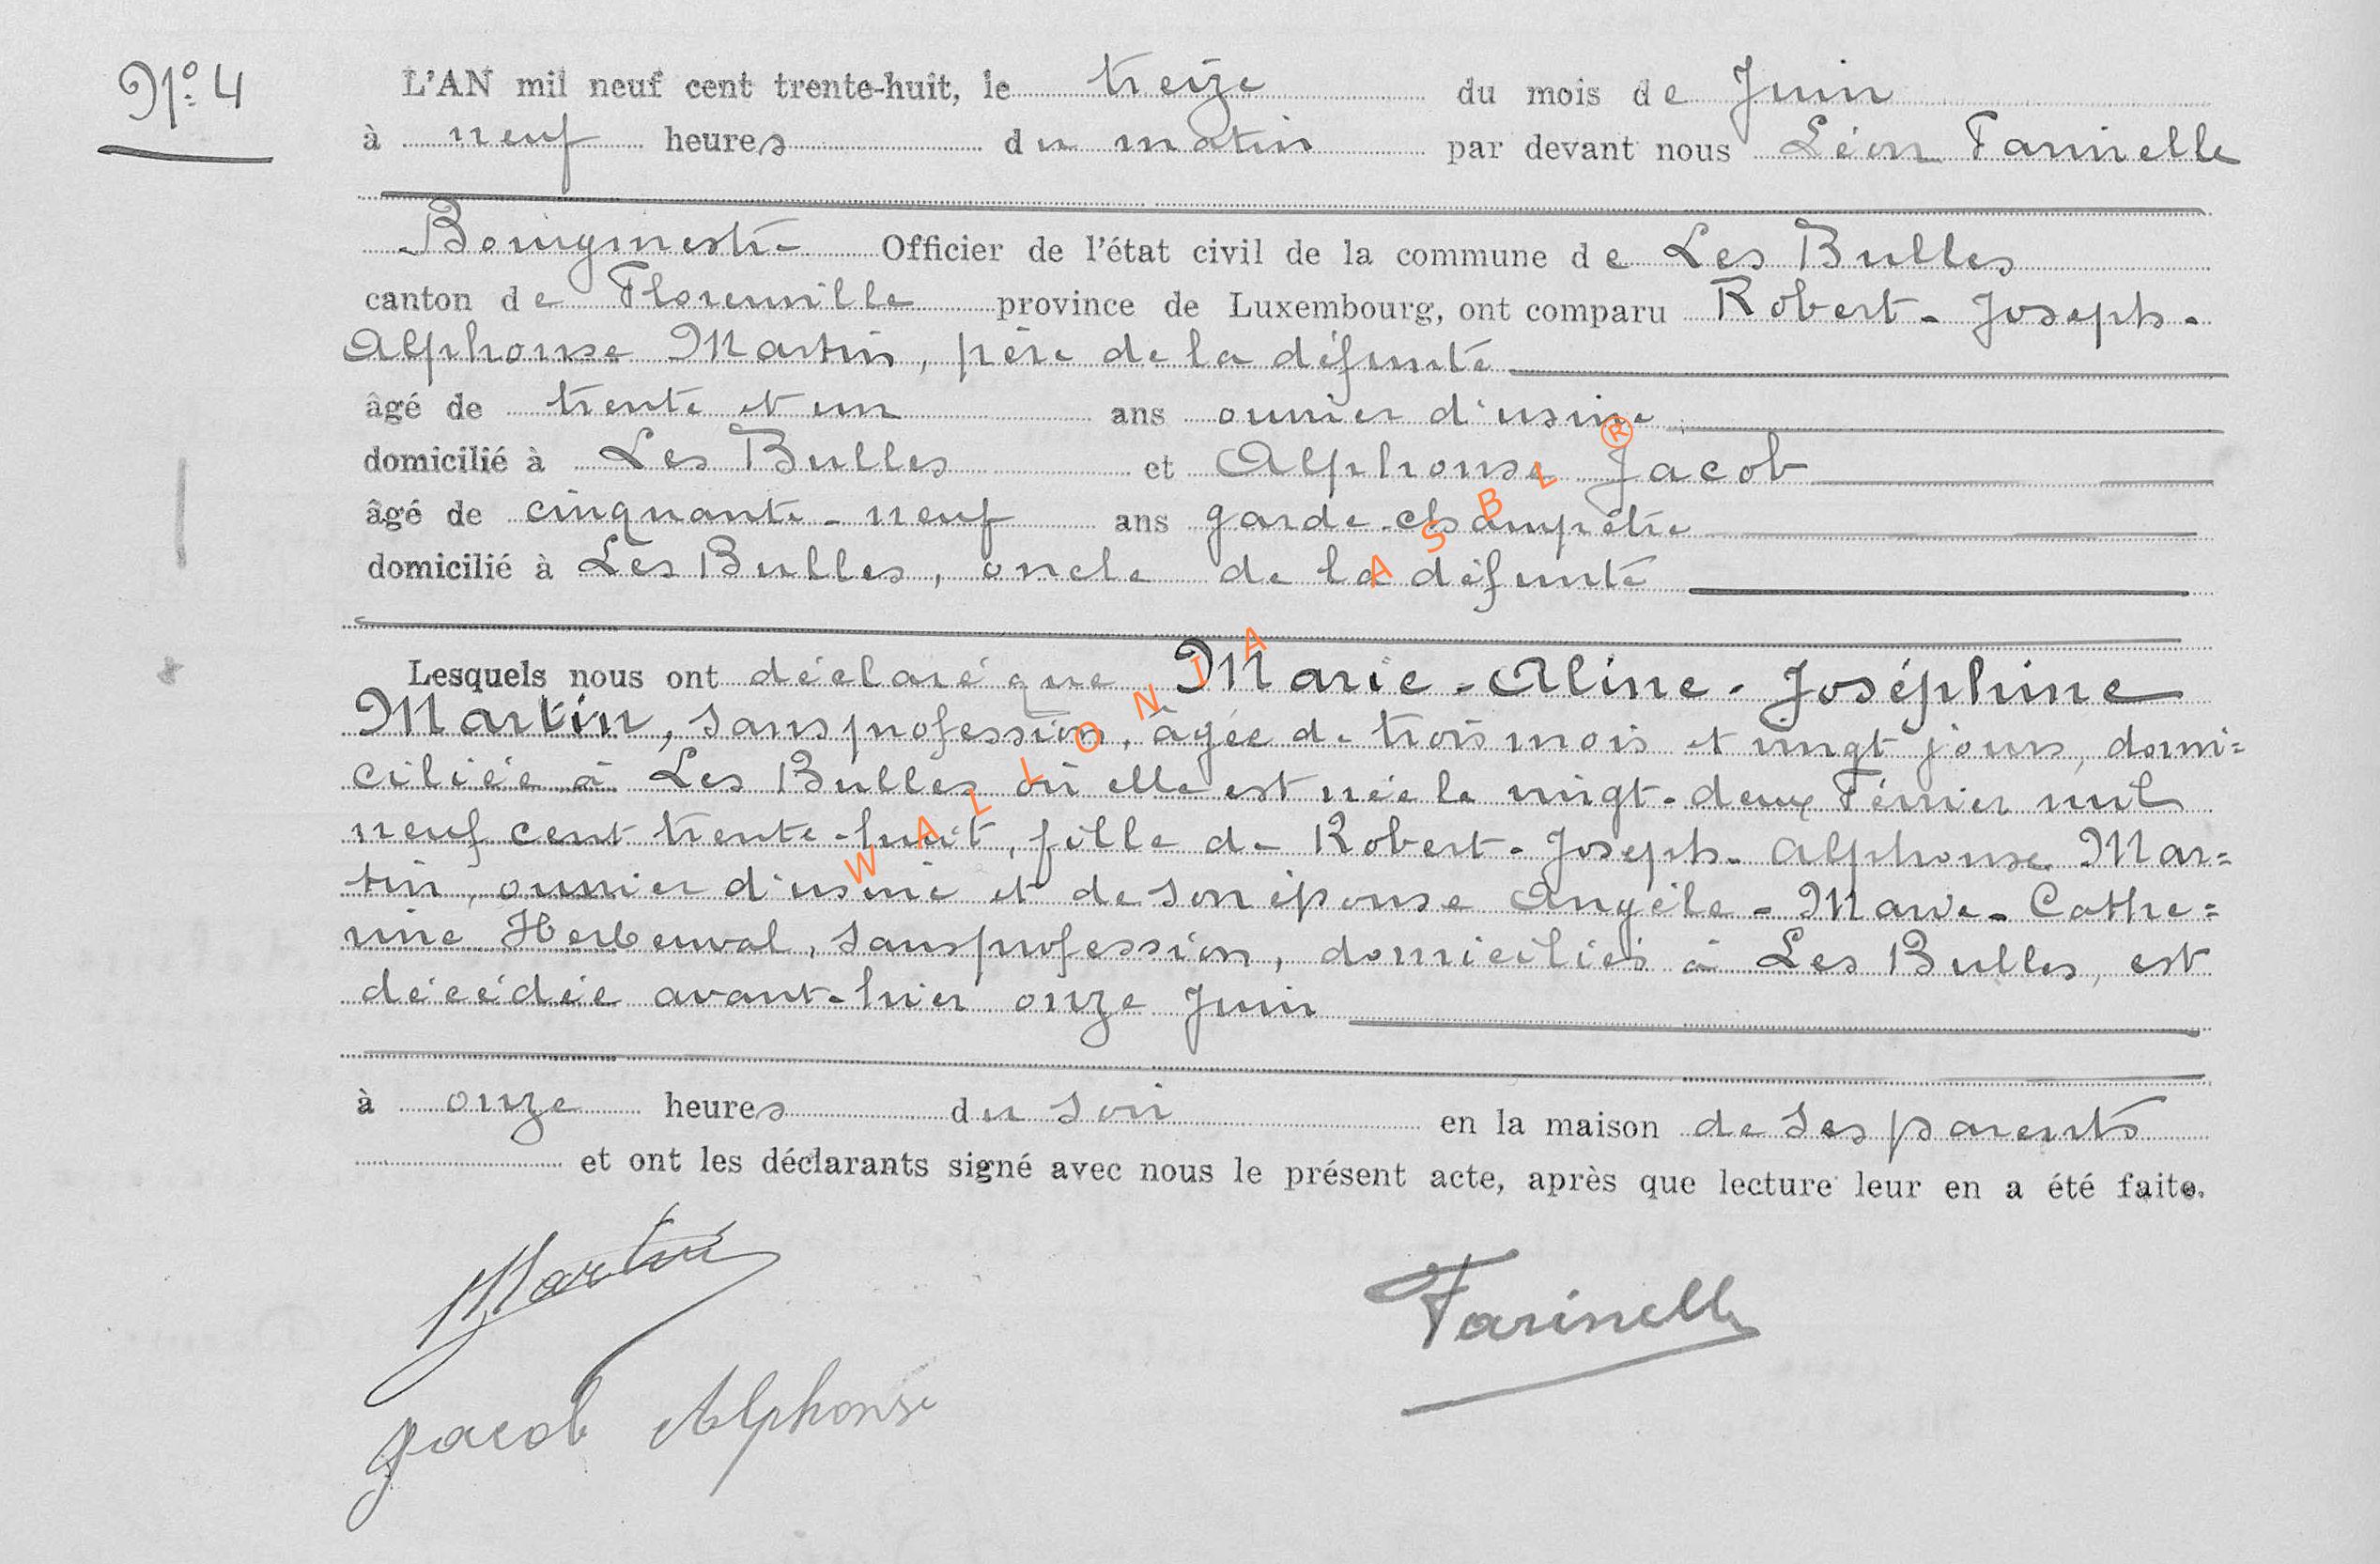 N° 4
L'AN mil neuf cent trente-huit, le treize du mois de Juin
à neuf heures du matin par devant nous Léon Farinelle
Bourgmestre Officier de l'état civil de la commune de Les Bulles
canton de Florenville province de Luxembourg, ont comparu Robert-Joseph-
Alphonse Martin, père de la défunte
âgé de trente et un ans ouvrier d'usine
domicilié à Les Bulles et Alphonse Jacob
âgé de cinquante-neuf ans garde-champêtre
domicilié à Les Bulles, oncle de la défunte
Lesquels nous ont déclaré que Marie-Aline-Joséphine
Martin, sans profession, âgée de trois mois et vingt jours, domi=
ciliée à Les Bulles où elle est née le vingt-deux Février mil
neuf cent trente-huit, fille de Robert-Joseph-Alphonse Mar=
tin, ouvrier d'usine et de son épouse Angèle-Marie-Cathe=
rine Herbeuval, sans profession, domiciliés à Les Bulles, est
décédée avant-hier onze Juin
à onze heures du soir en la maison de ses parents
et ont les déclarants signé avec nous le présent acte, après que lecture leur en a été faite.
Martin
Farinelle
Jacob Alphonse
WALLONIA ASBL ®